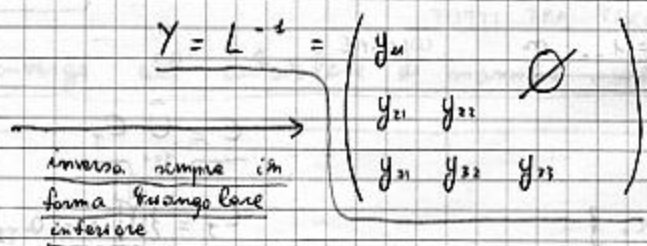 Y = L⁻¹ = ( y₁₁ ∅
y₂₁ y₂₂
y₃₁ y₃₂ y₃₃ )
inversa sempre in
forma triangolare
inferiore